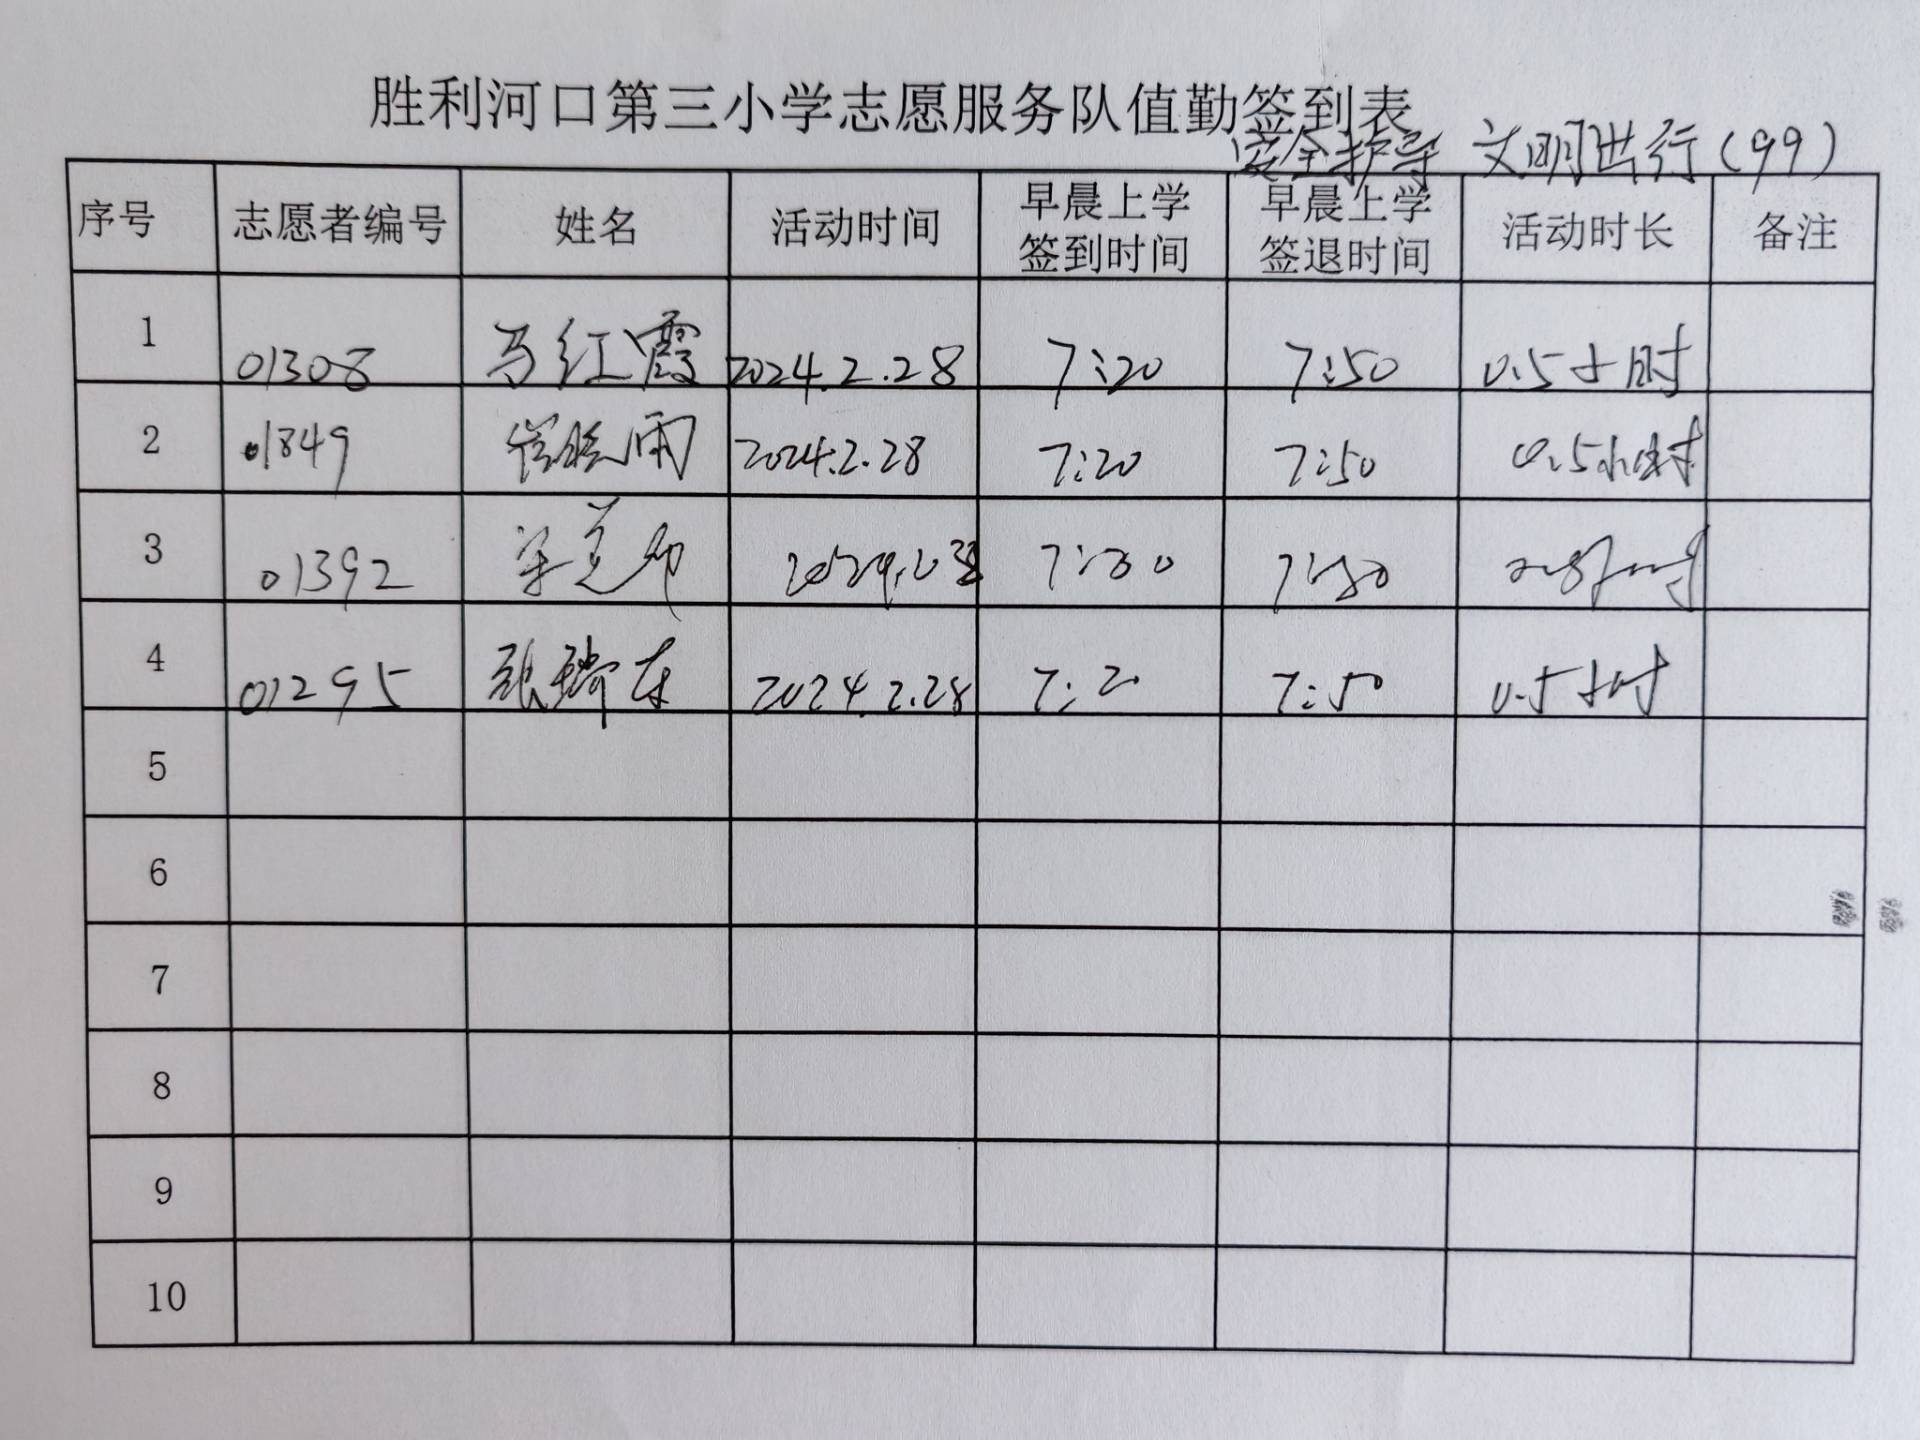 胜利河口第三小学志愿服务队值勤签到表
安全护导 文明出行(99)
序号 志愿者编号 姓名 活动时间 早晨上学签到时间 早晨上学签退时间 活动时长 备注
1 01308 马红霞 2024.2.28 7:20 7:50 0.5小时
2 01849 崔晓雨 2024.2.28 7:20 7:50 0.5小时
3 01392
4 01295 张瑞东 2024.2.28 7:20 7:50 0.5小时
5
6
7
8
9
10